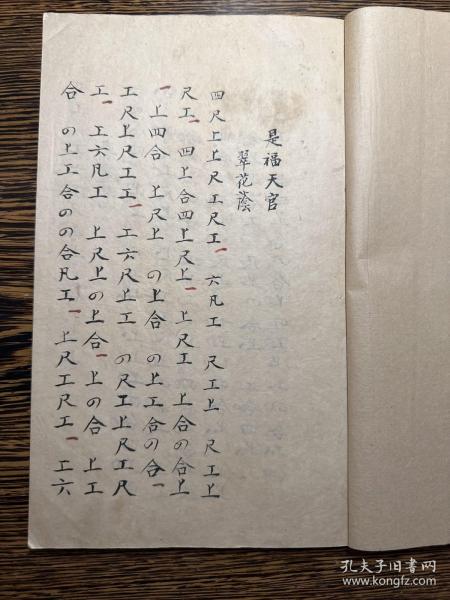 是福天官
翠花蔭
四尺上上尺工尺工 六凡工 尺工上 尺工上
尺工 四上合四上尺上 上尺工 上合の合上
一上四合 上尺上 の上合 の上工合の合
工尺上尺工工 工六尺上工 の尺工上尺工尺
工 工六凡工 上尺上の上合 上の合 上工
合 の上工合のの合凡工 上尺工尺工 工六
孔夫子旧书网
www.kongfz.com